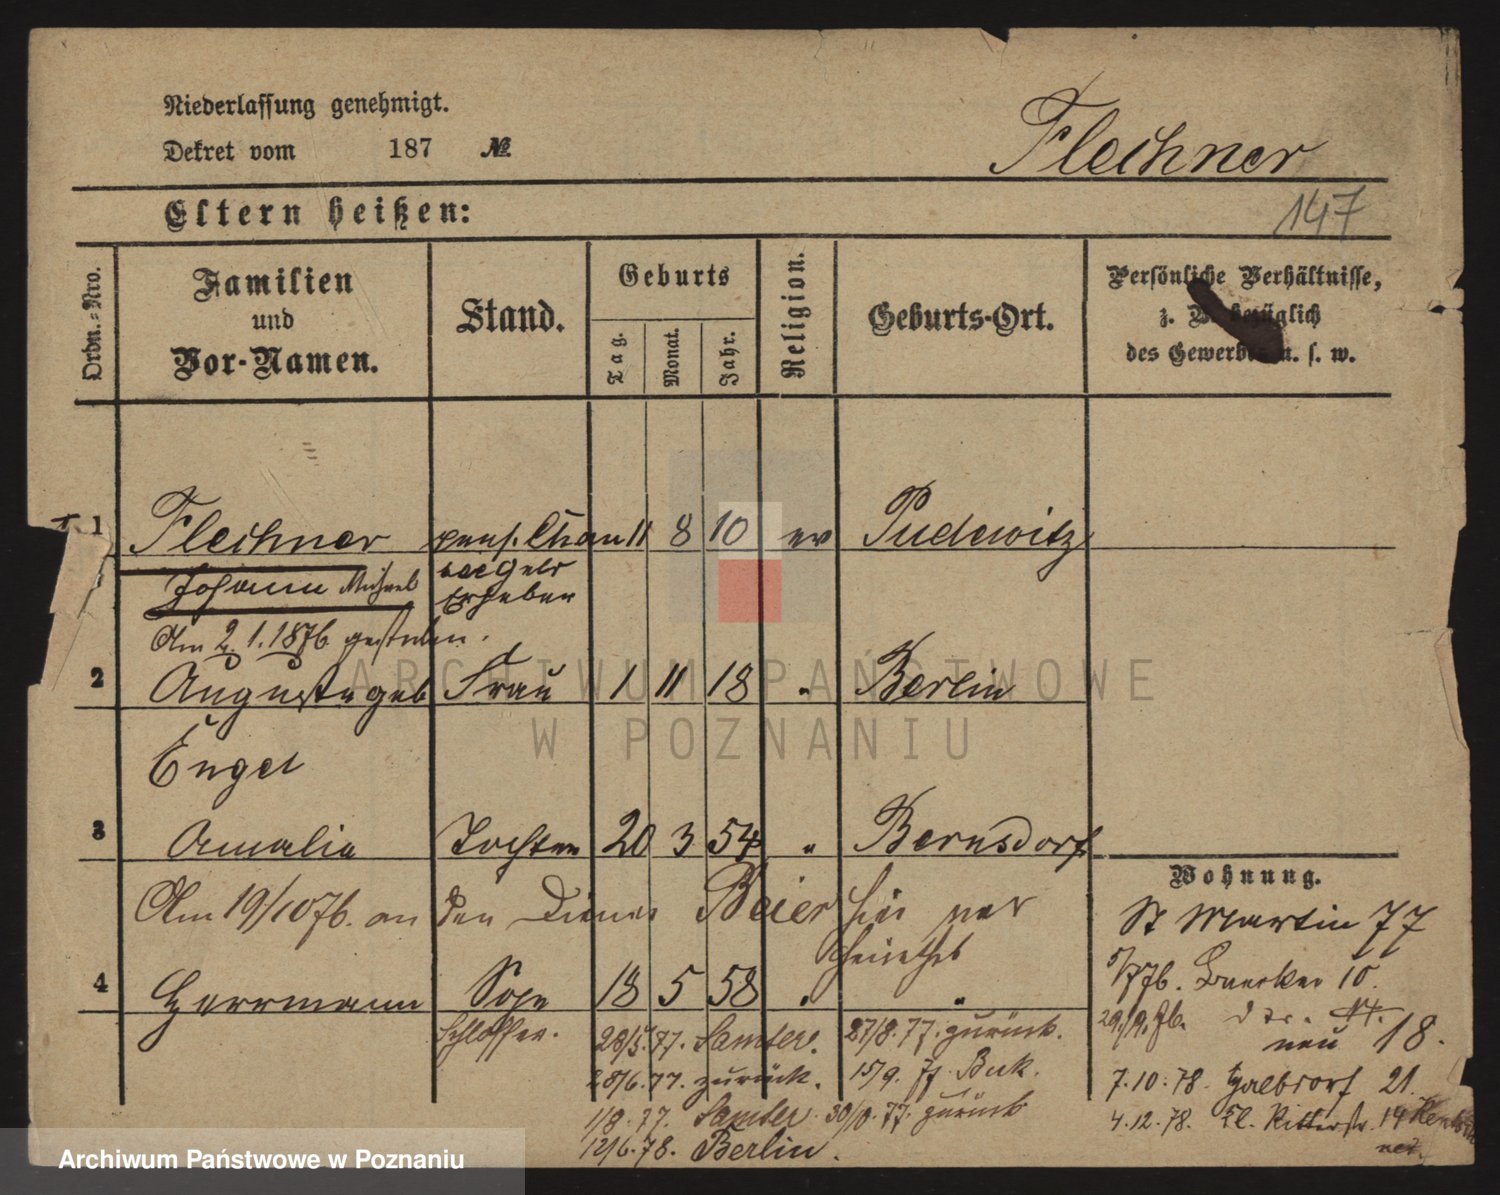 Niederlassung genehmigt.
Dekret vom 187 №
Flechner
147
Eltern heißen:
Ordn.-Nro.
Familien
und
Vor-Namen.
Stand.
Geburts
Tag.
Monat.
Jahr.
Religion.
Geburts-Ort.
Persönliche Verhältnisse,
z. B. bezüglich
des Gewerbes u. s. w.
1 Flechner pens. Chau 11 8 10 ev Pudewitz
Johann Michael
Erheber
Am 2.1.1876 gestorben.
2 Auguste geb Frau 1 11 18 " Berlin
Engel
3 Amalie Tochter 20 3 54 " Bernsdorf
Am 19/10 76. an den Diener Beier hier ver
heirathet
4 Herrmann Sohn 18 5 58 " "
Schlosser.
28/5.77. Samter. 27/8.77. zurück.
28/6.77. zurück. 15/9. 77 Buk.
1/8.77. Samter. 30/9.77. zurück
12/6.78. Berlin.
Wohnung.
St Martin 77
5/7 76. 10.
29./9. 76.
neu 18.
7.10.78. Halbdorf 21
4.12.78. Kl. Ritterstr. 14
ARCHIWUM PAŃSTWOWE
W POZNANIU
Archiwum Państwowe w Poznaniu